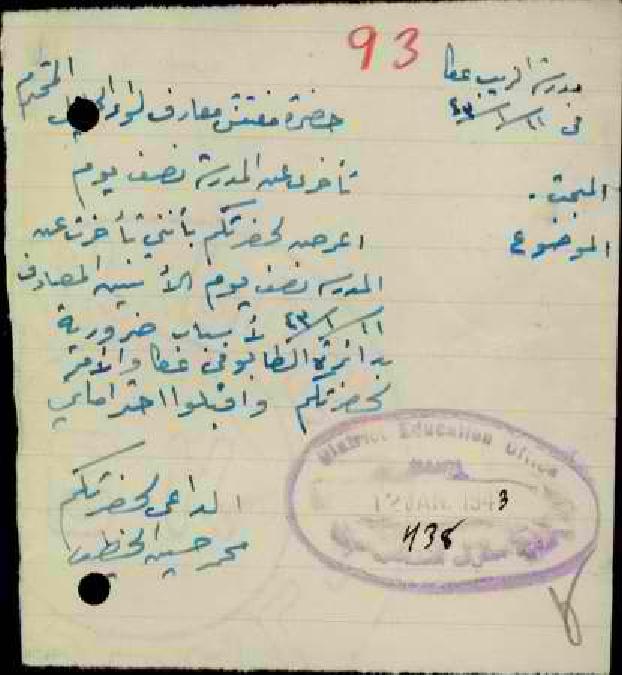 93
مدرسة عكا
في ١١/١/٤٣
حضرة مفتش معارف لواء الجليل المحترم
المبحث. تأخر عن المدرسة نصف يوم
الموضوع اعرض لحضرتكم بأنني تأخرت عن
المدرسة نصف يوم الاثنين المصادف
١١/١/٤٣ لأسباب ضرورية
بدائرة الطابو في عكا والأمر
لحضرتكم واقبلوا احترامي
الداعي لحضرتكم
حسين الخطيب
District Education Office
JAN. 1943
438